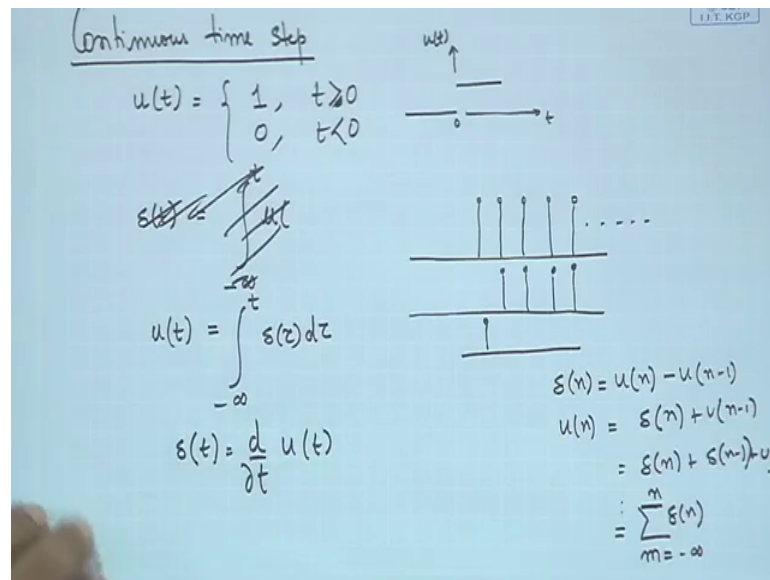 I.I.T. KGP
Continuous time step
u(t) = { 1, t≥0
0, t<0
u(t)
0
t
u(t) = ∫_{-∞}^{t} δ(τ)dτ
δ(t) = d/∂t u(t)
.....
δ(n) = u(n) - u(n-1)
u(n) = δ(n) + u(n-1)
= δ(n) + δ(n-1) + u
⋮
= ∑_{m=-∞}^{n} δ(n)